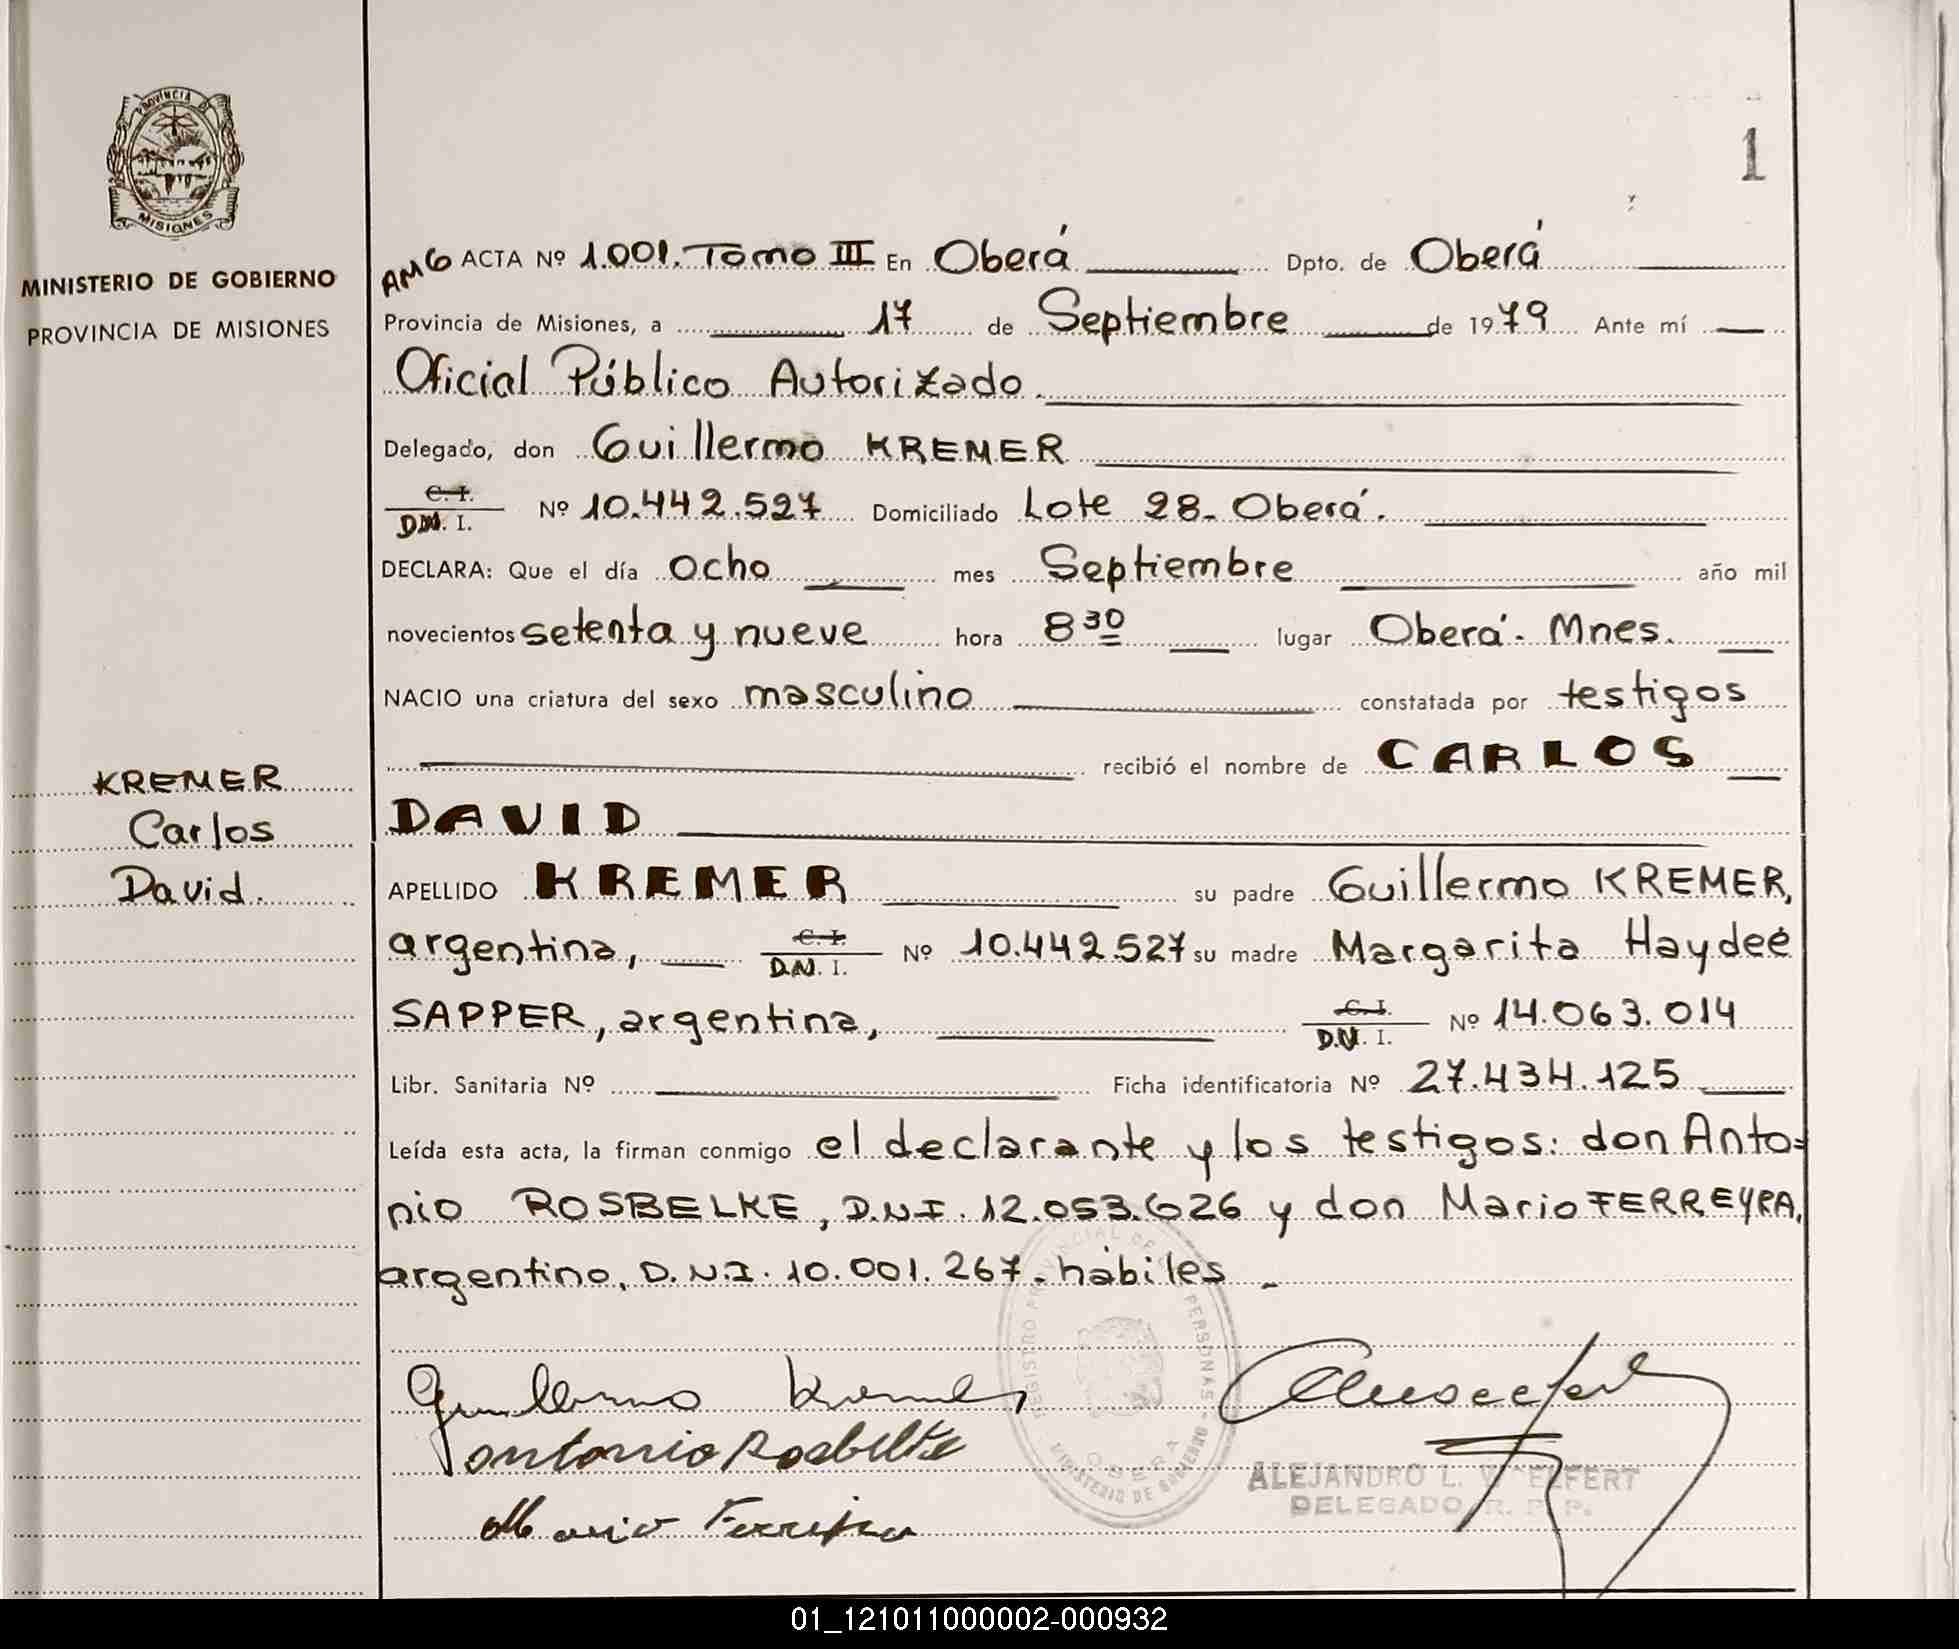 1
PROVINCIA DE
MISIONES
MINISTERIO DE GOBIERNO
PROVINCIA DE MISIONES
AMG ACTA Nº 1.001. Tomo III En Oberá Dpto. de Oberá
Provincia de Misiones, a 17 de Septiembre de 1979 Ante mí
Oficial Público Autorizado.
Delegado, don Guillermo KREMER
C. I.
D.N. I. Nº 10.442.527 Domiciliado Lote 28- Oberá.
DECLARA: Que el día ocho mes Septiembre año mil
novecientos setenta y nueve hora 8 30 lugar Oberá- Mnes.
NACIO una criatura del sexo masculino constatada por testigos
recibió el nombre de CARLOS
DAVID
KREMER
Carlos
David.
APELLIDO KREMER su padre Guillermo KREMER,
argentina, C. I. D.N. I. Nº 10.442.527 su madre Margarita Haydeé
SAPPER, argentina, C. I. D.N. I. Nº 14.063.014
Libr. Sanitaria Nº Ficha identificatoria Nº 27.434.125
Leída esta acta, la firman conmigo el declarante y los testigos: don Anto=
nio ROSBELKE, D.N.I. 12.053.626 y don Mario FERREYRA,
argentino, D.N.I. 10.001.267- hábiles -
REGISTRO PROVINCIAL DE PERSONAS
OBERA
MINISTERIO DE GOBIERNO
Guillermo Kremer
Antonio Rosbelke
Mario Ferreyra
ALEJANDRO L.
DELEGADO R. P. P.
01_121011000002-000932